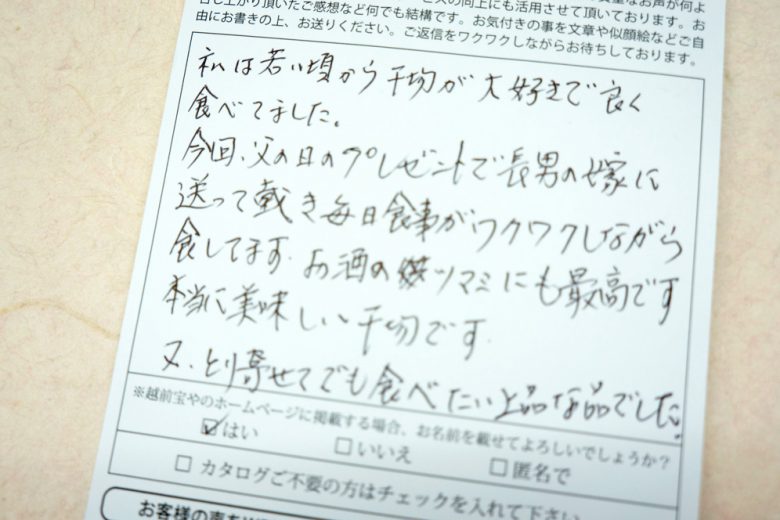 召し上がり頂いたご感想など何でも結構です。お気付きの事を文章や似顔絵などご自
由にお書きの上、お送りください。ご返信をワクワクしながらお待ちしております。
私は若い頃から干物が大好きで良く
食べてました。
今回、父の日のプレゼントで長男の嫁に
送って戴き毎日食事がワクワクしながら
食してます。お酒のツマミにも最高です
本当に美味しい干物です。
又、とり寄せてでも食べたい上品な品でした。
※越前宝やのホームページに掲載する場合、お名前を載せてよろしいでしょうか？
☑はい □いいえ □匿名で
□ カタログご不要の方はチェックを入れて下さい
お客様の声を